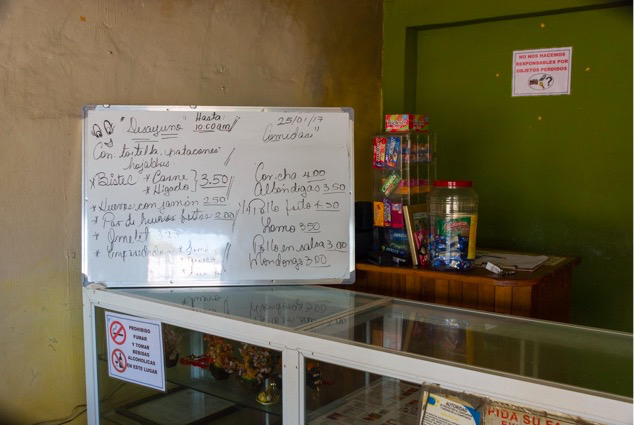 "Desayuno" Hasta 10:00am
Con tortilla, patacones
hojaldas
* Bistec * Carne 3.50
* Higado
* Huevos con jamón 2.50
* Par de huevos fritos 2.00
* Omelet
25/01/17
Comidas"
Concho 4.00
Albóndigas 3.50
1/4 Pollo frito 4.50
Lomo 3.50
Pollo en salsa 3.00
Mondongo 3.00
NO NOS HACEMOS
RESPONSABLES POR
OBJETOS PERDIDOS
PROHIBIDO
FUMAR
Y TOMAR
BEBIDAS
ALCOHOLICAS
EN ESTE LUGAR
PIDA SU